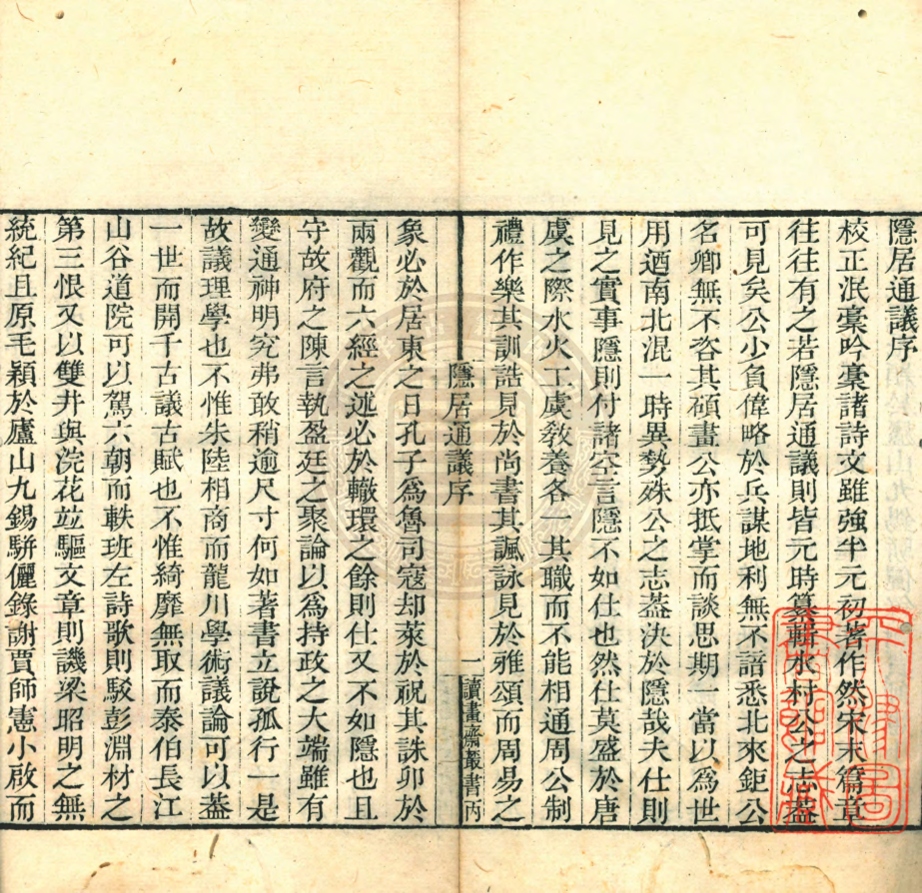 隱居通議序
校正泯稾吟稾諸詩文雖強半元初著作然宋末篇章
往往有之若隱居通議則皆元時纂輯水村公之志葢
可見矣公少負偉略於兵謀地利無不諳悉北來鉅公
名卿無不咨其碩畫公亦抵掌而談思期一當以爲世
用迺南北混一時異勢殊公之志葢決於隱哉夫仕則
見之實事隱則付諸空言隱不如仕也然仕莫盛於唐
虞之際水火工虞敎養各一其職而不能相通周公制
禮作樂其訓誥見於尚書其諷詠見於雅頌而周易之
隱居通議序
一
讀畫齋叢書丙
象必於居東之日孔子爲魯司寇却萊於祝其誅卯於
兩觀而六經之述必於轍環之餘則仕又不如隱也且
守故府之陳言執盈廷之聚論以爲持政之大端雖有
變通神明究弗敢稍逾尺寸何如著書立說孤行一是
故議理學也不惟朱陸相商而龍川學術議論可以葢
一世而開千古議古賦也不惟綺靡無取而泰伯長江
山谷道院可以駕六朝而軼班左詩歌則駁彭淵材之
第三恨又以雙井與浣花竝驅文章則譏梁昭明之無
統紀且原毛穎於廬山九錫騈儷錄謝賈師憲小啟而